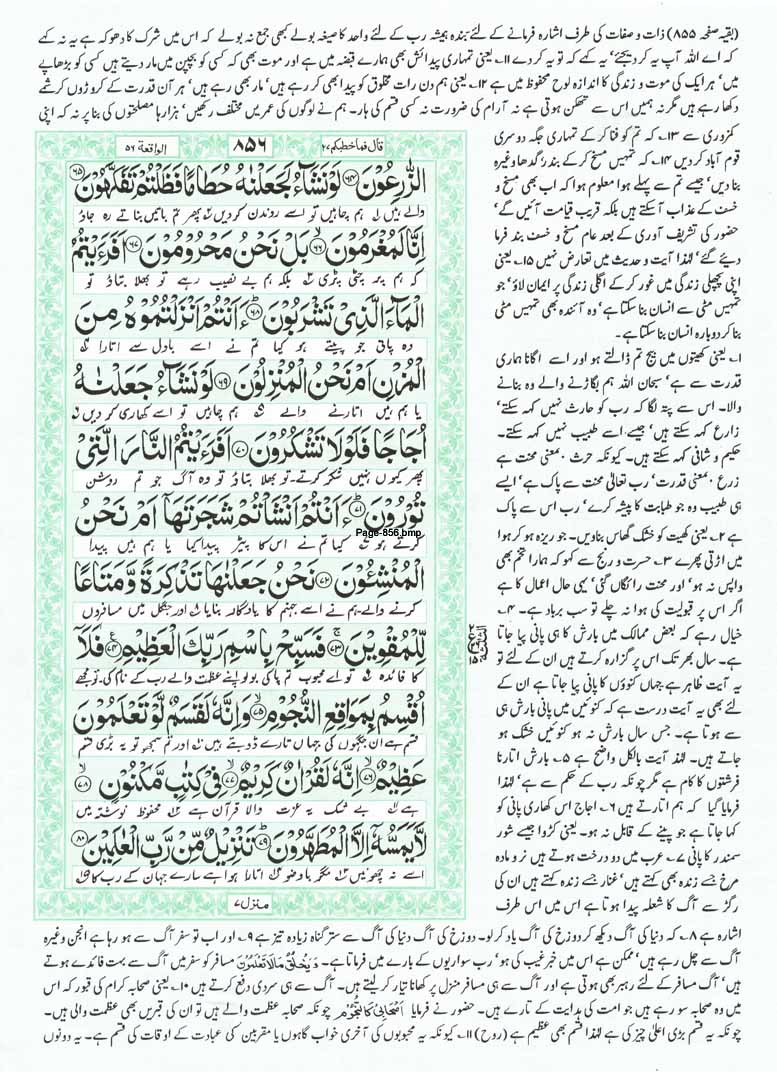 (بقیہ صفحہ ۸۵۵) ذات و صفات کی طرف اشارہ فرمانے کے لئے بندہ ہمیشہ رب کے لئے واحد کا صیغہ بولے کبھی جمع نہ بولے کہ اس میں شرک کا دھوکہ ہے یہ نہ کہے
کہ اے اللہ آپ یہ کر دیجئے' یہ کہے کہ تو یہ کر دے ۱۱۔ یعنی تمہاری پیدائش بھی ہمارے قبضہ میں ہے اور موت بھی کہ کسی کو بچپن میں مار دیتے ہیں کسی کو بڑھاپے
میں' ہر ایک کی موت و زندگی کا اندازہ لوح محفوظ میں ہے ۱۲۔ یعنی ہم دن رات مخلوق کو پیدا بھی کر رہے ہیں' مار بھی رہے ہیں' ہر آن قدرت کے کروڑوں کرشمے
دکھا رہے ہیں مگر نہ ہمیں اس سے تھکن ہوتی ہے نہ آرام کی ضرورت نہ کسی قسم کی ہار۔ ہم نے لوگوں کی عمریں مختلف رکھیں' ہزارہا مصلحتوں کی بنا پر نہ کہ اپنی
کمزوری سے ۱۳۔ کہ تم کو فنا کر کے تمہاری جگہ دوسری
قوم آباد کر دیں ۱۴۔ کہ تمہیں مسخ کر کے بندر گدھا وغیرہ
بنا دیں' جیسے تم سے پہلے ہوا معلوم ہوا کہ اب بھی مسخ و
خسف کے عذاب آسکتے ہیں بلکہ قریب قیامت آئیں گے'
حضور کی تشریف آوری کے بعد عام مسخ و خسف بند فرما
دیئے گئے' لہٰذا آیت و حدیث میں تعارض نہیں ۱۵۔ یعنی
اپنی پچھلی زندگی میں غور کر کے اگلی زندگی پر ایمان لاؤ' جو
تمہیں مٹی سے انسان بنا سکتا ہے' وہ آئندہ بھی تمہیں مٹی
بنا کر دوبارہ انسان بنا سکتا ہے۔
۱۔ یعنی کھیتوں میں بیج تم ڈالتے ہو اور اسے اگانا ہماری
قدرت سے ہے' سبحان اللہ ہم بگاڑنے والے وہ بنانے
والا۔ اس سے پتہ لگا کہ رب کو حارث نہیں کہہ سکتے'
زارع کہہ سکتے ہیں' جیسے اسے طبیب نہیں کہہ سکتے'
حکیم و شافی کہہ سکتے ہیں۔ کیونکہ حرث معنی محنت ہے
زرع معنی قدرت' رب تعالیٰ محنت سے پاک ہے' ایسے
ہی طبیب وہ جو طبابت کا پیشہ کرے' رب اس سے پاک
ہے ۲۔ یعنی کھیت کو خشک گھاس بنا دیں۔ جو ریزہ ہو کر ہوا
میں اڑتی پھرے ۳۔ حسرت و رنج سے کہو کہ ہمارا تخم بھی
واپس نہ ہو' اور محنت رائگاں گئی' یہی حال اعمال کا ہے
اگر اس پر قبولیت کی ہوا نہ چلے تو سب برباد ہے۔ ۴۔
خیال رہے کہ بعض ممالک میں بارش کا ہی پانی پیا جاتا
ہے۔ سال بھر تک اس پر گزارہ کرتے ہیں ان کے لئے تو
یہ آیت ظاہر ہے جہاں کنوؤں کا پانی پیا جاتا ہے ان کے
لئے بھی یہ آیت درست ہے کہ کنوئیں میں پانی بارش ہی
سے ہوتا ہے۔ جس سال بارش نہ ہو کنوئیں خشک ہو
جاتے ہیں۔ لہٰذا آیت بالکل واضح ہے ۵۔ بارش اتارنا
فرشتوں کا کام ہے مگر چونکہ رب کے حکم سے ہے' لہٰذا
فرمایا گیا کہ ہم اتارتے ہیں ۶۔ اجاج اس کھاری پانی کو
کہا جاتا ہے جو پینے کے قابل نہ ہو۔ یعنی کڑوا جیسے شور
سمندر کا پانی ۷۔ عرب میں دو درخت ہوتے ہیں نر و مادہ
مرخ جسے زندہ بھی کہتے ہیں' غفار جسے زندہ کہتے ہیں ان کی
رگڑ سے آگ کا شعلہ پیدا ہوتا ہے اس میں اس طرف
قال فما خطبکم ۲۷
۸۵۶
الواقعۃ ۵۶
الزّٰرِعُوْنَ ۝۶۴ لَوْ نَشَآءُ لَجَعَلْنٰهُ حُطَامًا فَظَلْتُمْ تَفَكَّهُوْنَ ۝۶۵
والے ہیں ہم چاہیں تو اسے روندن کر دیں پھر تم باتیں بناتے رہ جاؤ
اِنَّا لَمُغْرَمُوْنَ ۝۶۶ بَلْ نَحْنُ مَحْرُوْمُوْنَ ۝۶۷ اَفَرَءَيْتُمُ
کہ ہم پر چٹی پڑی بلکہ ہم بے نصیب رہے تو بھلا بتاؤ تو
الْمَآءَ الَّذِيْ تَشْرَبُوْنَ ۝۶۸ ءَاَنْتُمْ اَنْزَلْتُمُوْهُ مِنَ
وہ پانی جو پیتے ہو کیا تم نے اسے بادل سے اتارا
الْمُزْنِ اَمْ نَحْنُ الْمُنْزِلُوْنَ ۝۶۹ لَوْ نَشَآءُ جَعَلْنٰهُ
یا ہم ہیں اتارنے والے ہم چاہیں تو اسے کھاری کر دیں
اُجَاجًا فَلَوْلَا تَشْكُرُوْنَ ۝۷۰ اَفَرَءَيْتُمُ النَّارَ الَّتِيْ
پھر کیوں نہیں شکر کرتے۔ تو بھلا بتاؤ تو وہ آگ جو تم روشن
تُوْرُوْنَ ۝۷۱ ءَاَنْتُمْ اَنْشَاْتُمْ شَجَرَتَهَآ اَمْ نَحْنُ
کرتے ہو کیا تم نے اس کا پیڑ پیدا کیا یا ہم ہیں پیدا
Page-856.bmp
الْمُنْشِـُٔوْنَ ۝۷۲ نَحْنُ جَعَلْنٰهَا تَذْكِرَةً وَّمَتَاعًا
کرنے والے۔ ہم نے اسے جہنم کا یادگار بنایا اور جنگل میں مسافروں
لِّلْمُقْوِيْنَ ۝۷۳ فَسَبِّحْ بِاسْمِ رَبِّكَ الْعَظِيْمِ ۝۷۴ فَلَآ
کا فائدہ تو اے محبوب تم پاکی بولو اپنے عظمت والے رب کے نام کی۔ تو مجھے
اُقْسِمُ بِمَوٰقِعِ النُّجُوْمِ ۝۷۵ وَاِنَّهٗ لَقَسَمٌ لَّوْ تَعْلَمُوْنَ
قسم ہے ان جگہوں کی جہاں تارے ڈوبتے ہیں اور تم سمجھو تو یہ بڑی قسم
عَظِيْمٌ ۝۷۶ اِنَّهٗ لَقُرْاٰنٌ كَرِيْمٌ ۝۷۷ فِيْ كِتٰبٍ مَّكْنُوْنٍ ۝۷۸
ہے بے شک یہ عزت والا قرآن ہے محفوظ نوشتہ میں
لَّا يَمَسُّهٗٓ اِلَّا الْمُطَهَّرُوْنَ ۝۷۹ تَنْزِيْلٌ مِّنْ رَّبِّ الْعٰلَمِيْنَ ۝۸۰
اسے نہ چھوئیں مگر باوضو اتارا ہوا ہے سارے جہان کے رب کا
منزل ۷
اشارہ ہے ۸۔ کہ دنیا کی آگ دیکھ کر دوزخ کی آگ یاد کر لو۔ دوزخ کی آگ دنیا کی آگ سے ستر گناہ زیادہ تیز ہے ۹۔ اور اب تو سفر آگ سے ہو رہا ہے انجن وغیرہ
آگ سے چل رہے ہیں' ممکن ہے اس میں خبر غیب کی ہو' رب سواریوں کے بارے میں فرماتا ہے۔ وَيَخْلُقُ مَا لَا تَعْلَمُوْنَ مسافر کو سفر میں آگ سے بہت فائدے ہوتے
ہیں' آگ مسافر کے لئے رہبر بھی ہوتی ہے اور آگ سے ہی مسافر منزل پر کھانا تیار کر لیتے ہیں۔ آگ سے ہی سردی دفع کرتے ہیں ۱۰۔ یعنی صحابہ کرام کی قبور کہ اس
میں وہ صحابہ سو رہے ہیں جو امت کی ہدایت کے تارے ہیں۔ حضور نے فرمایا اَصْحَابِيْ كَالنُّجُوْمِ چونکہ صحابہ عظمت والے ہیں تو ان کی قبریں بھی عظمت والی ہیں۔
چونکہ یہ قسم بڑی اعلیٰ چیز کی ہے لہٰذا قسم بھی عظیم ہے (روح) ۱۱۔ کیونکہ یہ محبوبوں کی آخری خواب گاہوں یا مقربین کی عبادت کے اوقات کی قسم ہے۔ یہ دونوں